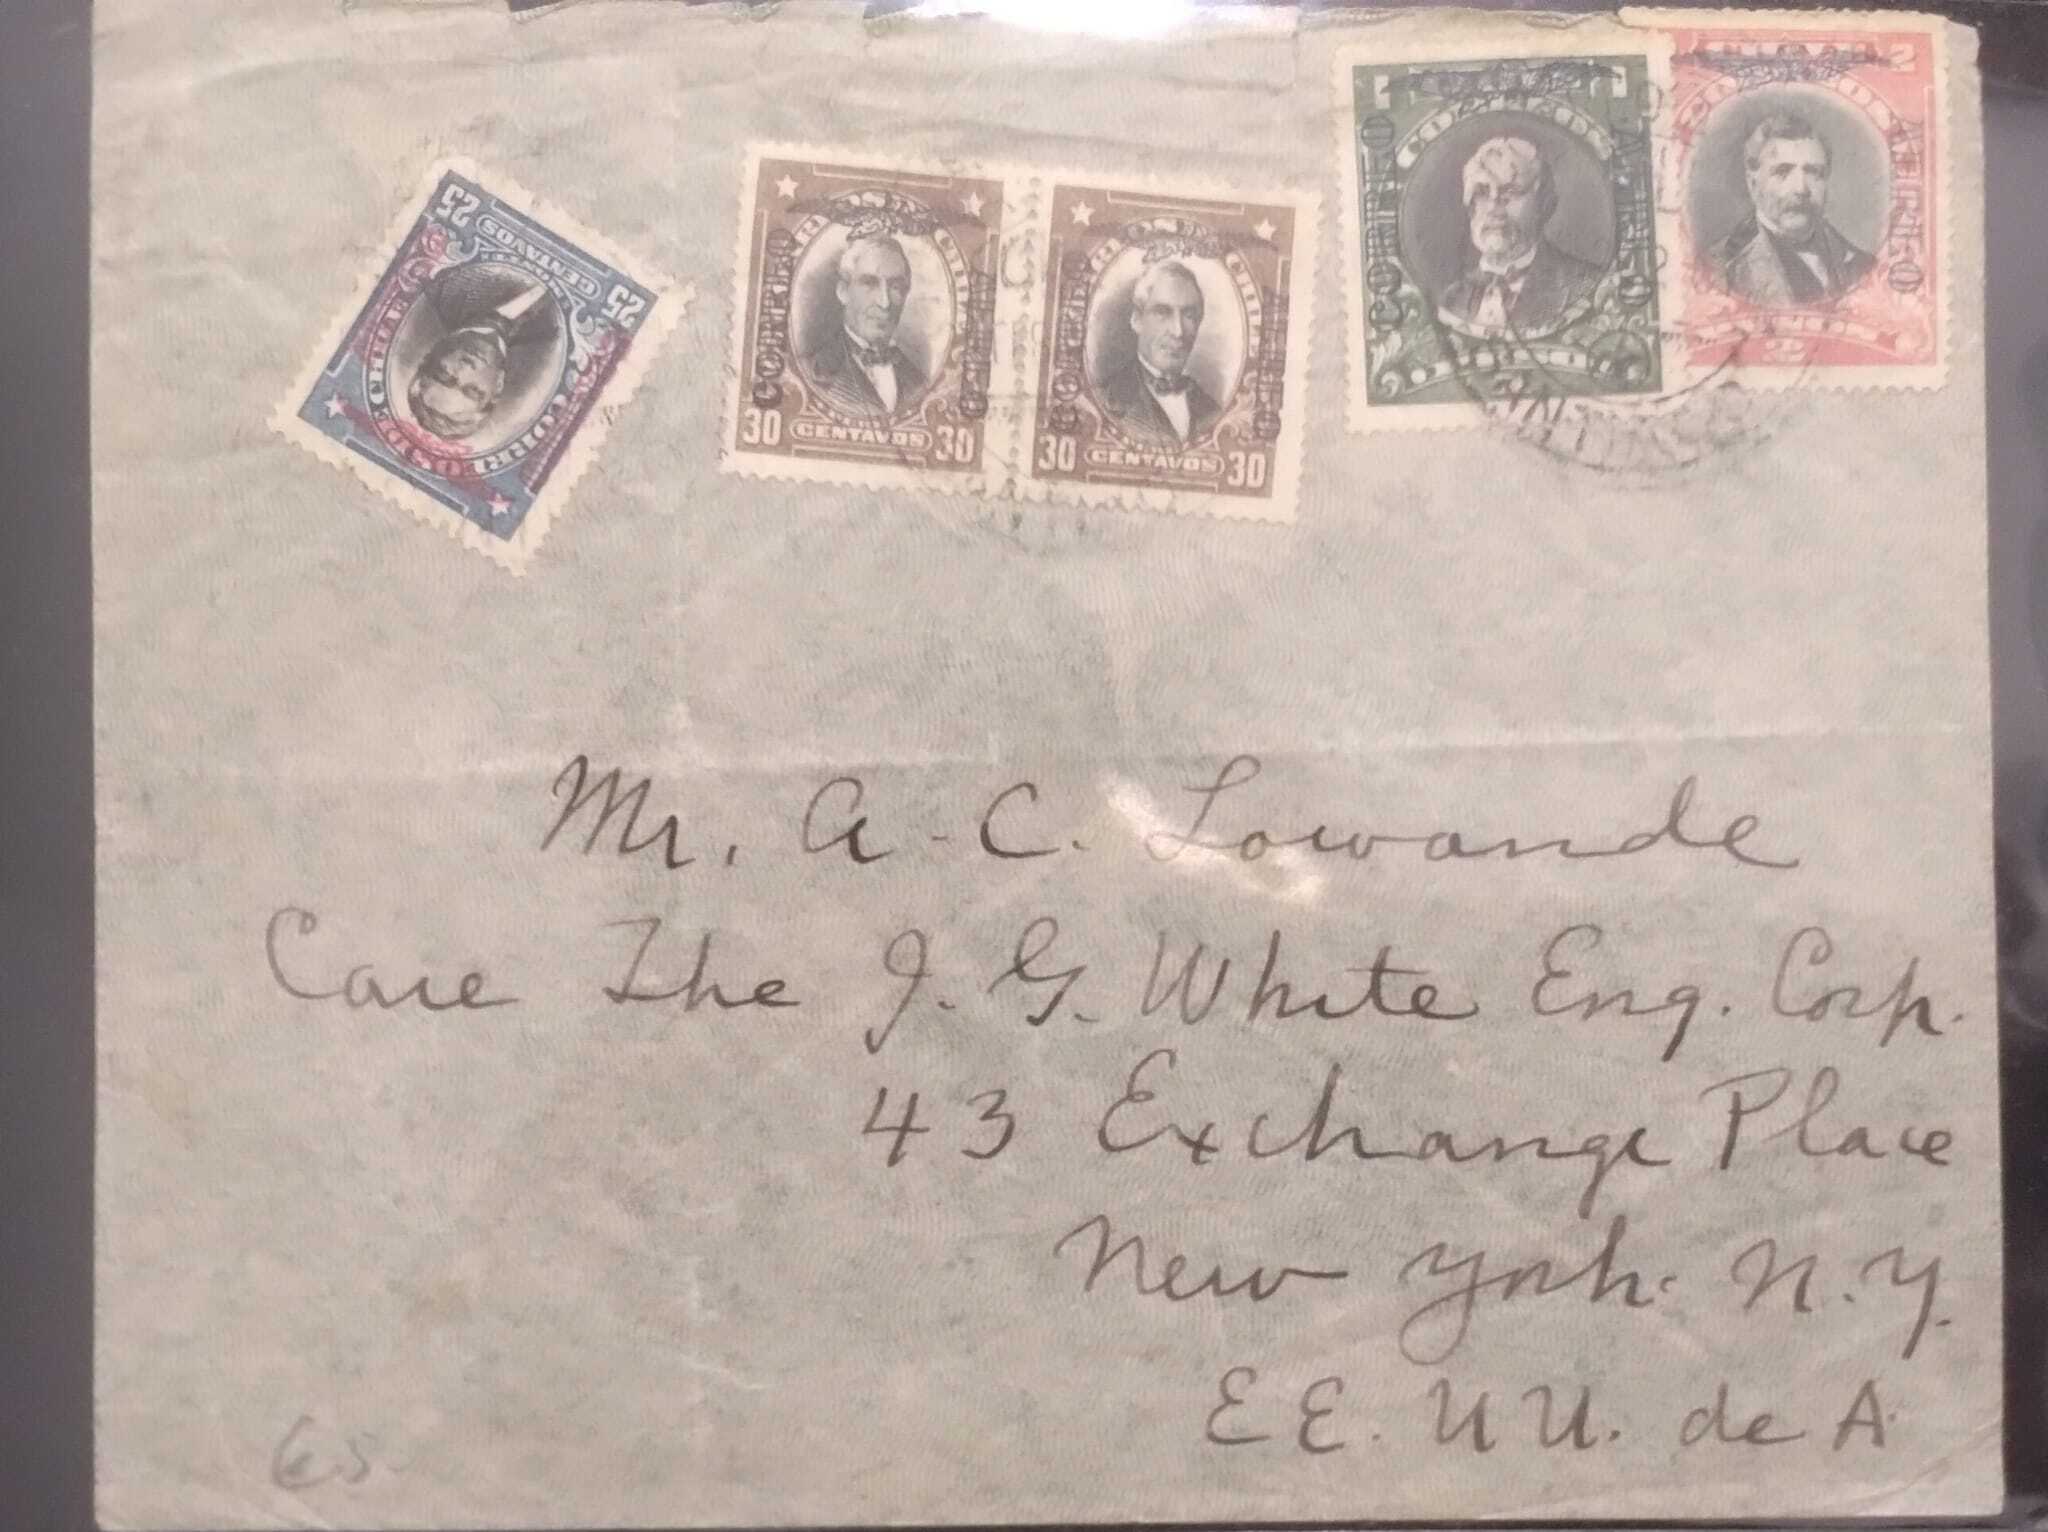 25 CENTAVOS 25
CORREOS DE CHILE
CORREOS CHILE
CORREO AEREO
30 CENTAVOS 30
CORREOS CHILE
CORREO AEREO
30 CENTAVOS 30
1 1
CORREOS
CORREO AEREO
2
CORREOS
AEREO
2
Mr. A. C. Lowande
Care The J. G. White Eng. Corp.
43 Exchange Place
New York. N. Y.
EE. UU. de A.
65